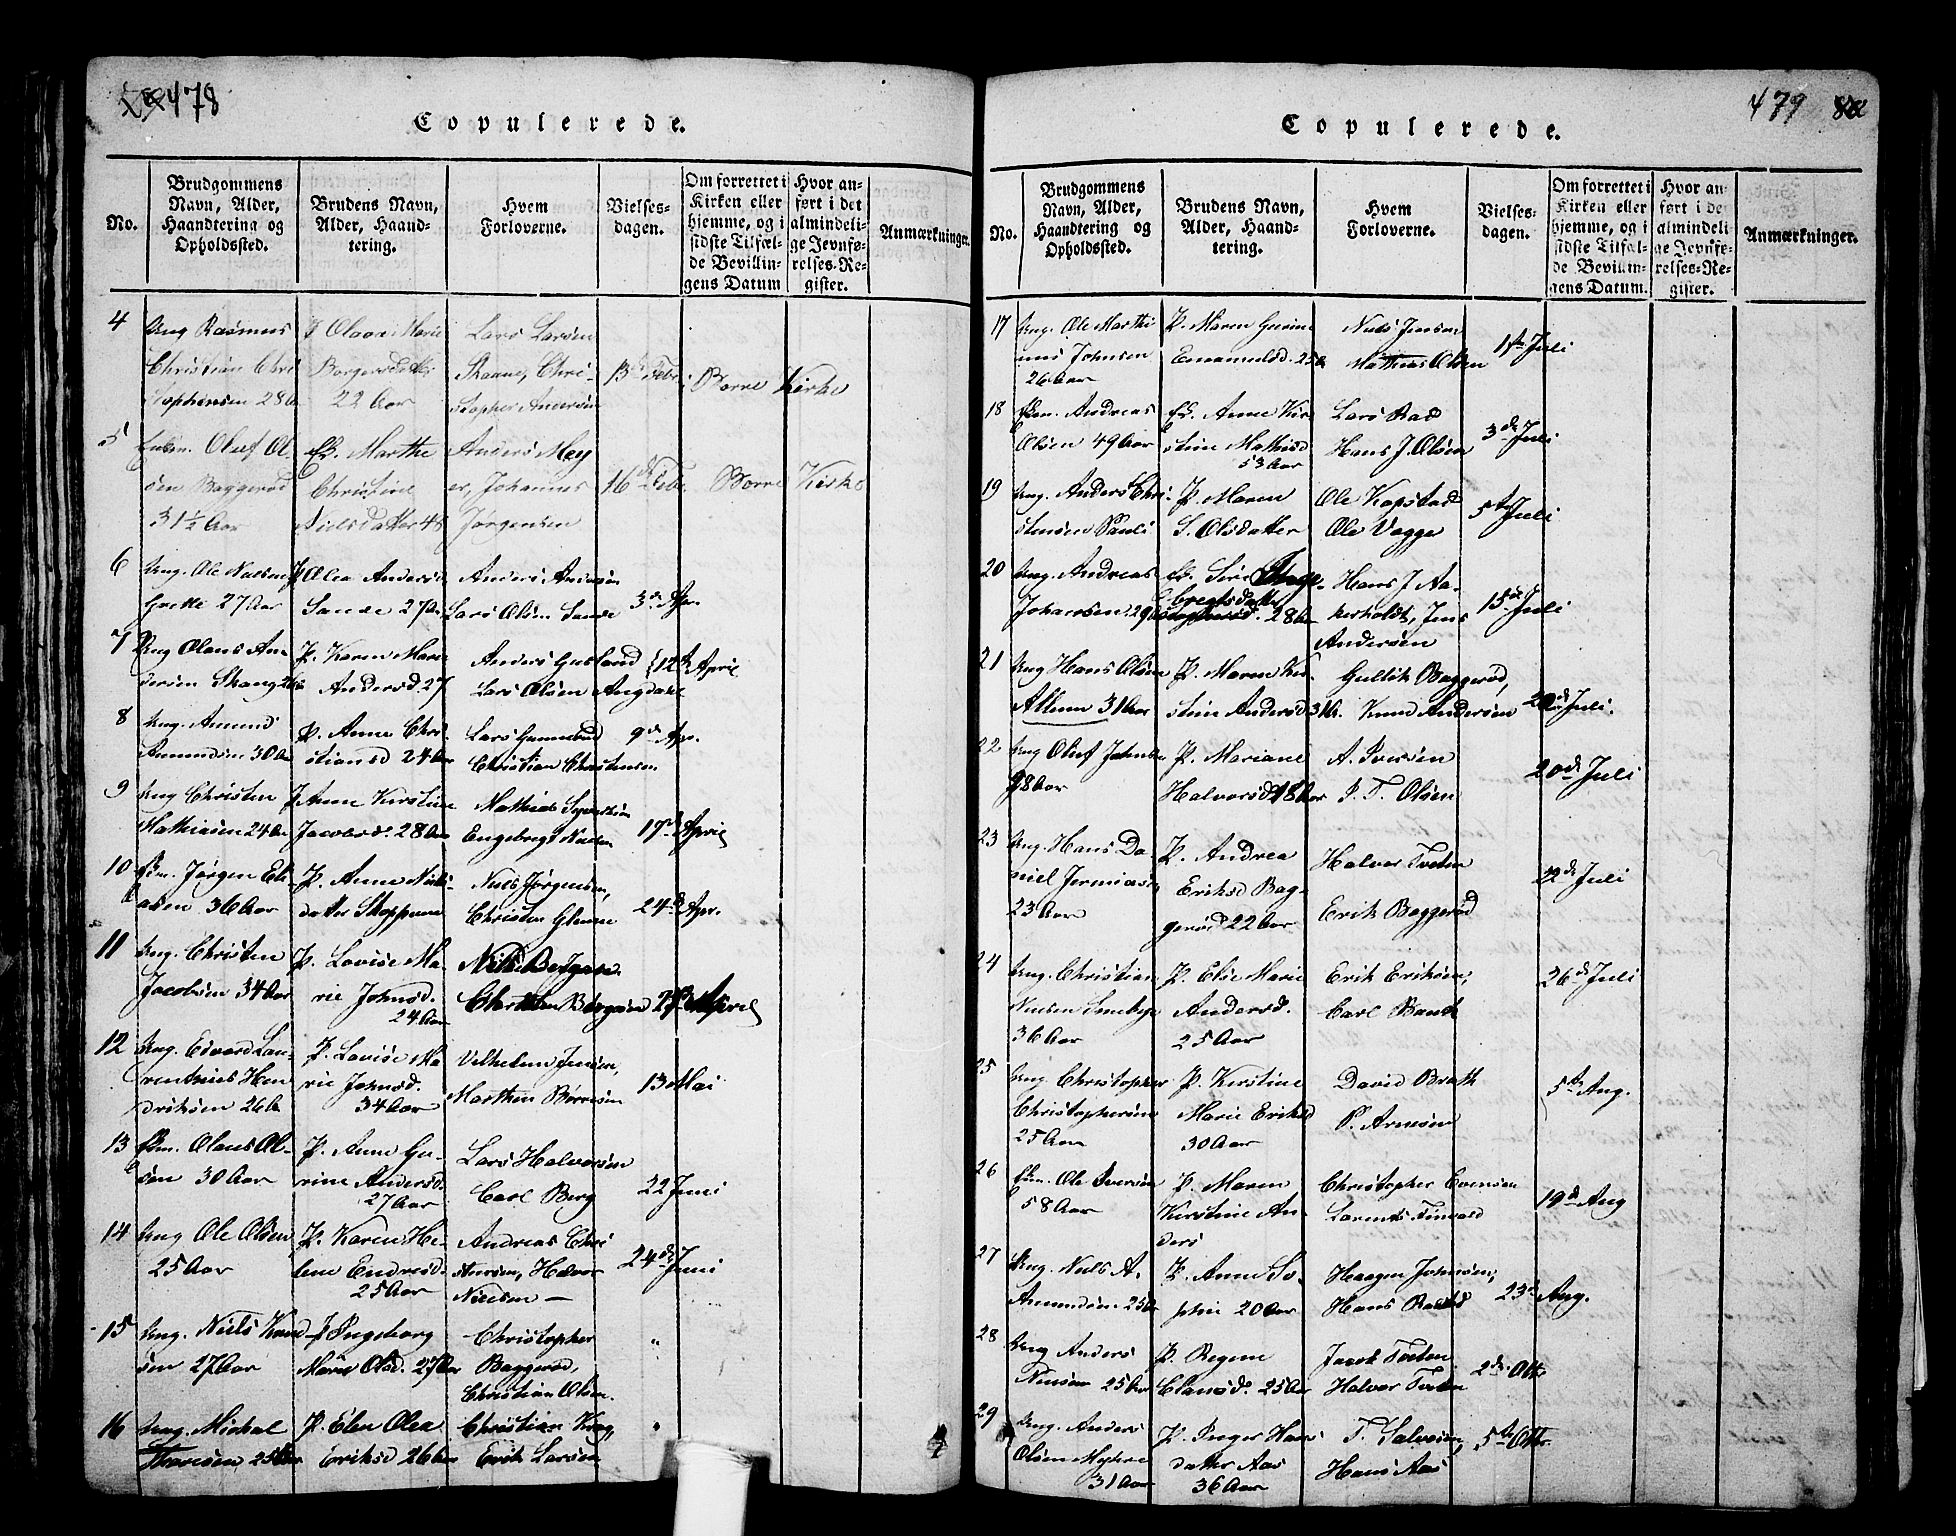 478
Copulerede.
No.
Brudgommens
Navn, Alder,
Haandtering og
Opholdssted.
Brudens Navn,
Alder, Haand-
tering.
Hvem
Forloverne.
Vielses-
dagen.
Om forrettet i
Kirken eller
hjemme, og i
sidste Tilfæl-
de Bevillin-
gens Datum
Hvor an-
ført i det
almindeli-
ge Jevnfø-
relses-Re-
gister.
Anmærkninger.
4
Ung Rasmus
Christian Chri
stophersen 28
Olava Marie
Borgersdatter
22 Aar
Lars Larsen
Skaane, Chri-
stopher Andersen
13 Febr.
Borre Kirke
5
Enkem. Oluf Ol
sen Baggerød
31½ Aar
E. Marthe
Christine
Nielsdatter 45
Anders Mey
er, Johannes
Jørgensen
16de Febr.
Borre Kirke
6
Ung. Ole Nielsen
27 Aar
Olea Andersd
Sande 27
Anders Andersen
Lars Olsen Sande
3de Apr.
7
Ung Olaus An
dersen Skang 26
P. Karen Marie
Andersd. 27
Anders Gusland
Lars Olsen Angdahl
12te April
8
Ung. Amund
Amundsen 30 Aar
P. Anne Chri
stiansd 24 Aar
Lars
Christian Christensen
9de Apr.
9
Ung Christen
Mathiasen 24 Aar
P Anne Kirstine
Jacobsd. 28 Aar
Mathias
Engebregt Nielsen
17de April
10
Em. Jørgen Eli-
asen 36 Aar
P. Anne Niels-
datter Skoppum
Niels Jørgensen,
Christen
24de Apr.
11
Ung. Christen
Jacobsen 34 Aar
P. Lovise Ma-
rie Johnsd.
24 Aar
Niels
Christian
April
12
Ung. Edvard Lau-
rentius Hen
driksen 26 Aar
P. Lovise Ma
rie Johnsd.
34 Aar
Vilhelm Jensen,
Marthin Børresen
13 Mai
13
Em. Olaus Ol-
sen 30 Aar
P. Anne Gu-
rine Andersd.
27 Aar
Lars Halvorsen
Carl Berg
22 Juni
14
Ung Ole Olsen
25 Aar
P. Karen He-
lene Endresd.
25 Aar
Andreas Chri
stensen, Halvor
Nielsen —
24de Juni
15
Ung. Niels Knud
sen 27 Aar
P Ingeborg
Marie Olsd. 27 Aar
Christopher
Baggerød,
Christian Olsen.
"
16
Ung. Michal
Thoresen 25 Aar
P. Elen Olea
Eriksd 26 Aar
Christian Krog,
Erik Larsen
"
479
Copulerede.
No.
Brudgommens
Navn, Alder,
Haandtering og
Opholdssted.
Brudens Navn,
Alder, Haand-
tering.
Hvem
Forloverne.
Vielses-
dagen.
Om forrettet i
Kirken eller
hjemme, og i
sidste Tilfæl-
de Bevillin-
gens Datum.
Hvor an-
ført i det
almindeli-
ge Jevnfø-
relses-Re-
gister.
Anmærkninger.
17
Ung. Ole Marthi
nus Johnsen
26 Aar
P. Maren Gurine
Emanuelsd. 25
Niels Jensen
Mathias Olsen
1ste Juli
18
Em. Andreas
Olsen 49 Aar
E. Anne Kir
stine Mathisd
53 Aar
Lars Rød
Hans J. Olsen
3de Juli
19
Ung. Anders Chri-
stensen Pauli
P. Maren
S. Olsdatter
Ole Kopstad
Ole Vegger
5te Juli
20
Ung. Andreas
Johansen 29
E. Siri Inge-
bregtsdatter
28 Aar
Hans J. Aa-
kerholdt, Jens
Andersen
15de Juli
21
Ung Hans Olsen
Allum 31 Aar
P. Maren Kir
stine Andersd 31
Gullik Baggerød,
Knud Andersen
20de Juli.
22
Ung Oluf Johnsen
28 Aar
P. Mariane
Halvorsd 18 Aar
A. Iversen
P. T. Olsen
20de Juli
23
Ung. Hans Da-
niel Jeremias
23 Aar
P. Andrea
Eriksd Bag-
gerød 22 Aar
Halvor Tveten
Erik Baggerød
22de Juli
24
Ung. Christian
Nielsen Smebye
36 Aar
P. Else Marie
Andersd.
25 Aar
Erik Eriksen,
Carl Bauth
26de Juli
25
Ung. Christopher
Christophersen
25 Aar
P. Kirstine
Marie Eriksd
30 Aar
David Brath
P. Arnesen
5te Aug.
26
Em. Ole Iversen
58 Aar
P. Maren
Kirstine An-
ders
Christopher Evensen
Lorents
19de Aug
27
Ung. Niels A.
Amundsen 25 Aar
P. Anne So-
phie 20 Aar
Haagen Johnsen,
Hans
23de Aug.
28
Ung Anders
Nielsen 25 Aar
P. Regine
Clausd. 25 Aar
Jacob Tveten
Halvor Tveten
2de Oktr
29
Ung. Anders
Olsen Myhre
31 Aar
P. Inger Hans
datter Aas
36 Aar
T. Salvesen,
Hans Aas
5te Oktr.